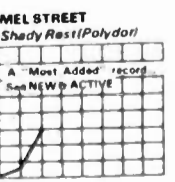 MEL STREET
Shady Rest (Polydor)
A "Most Added" record
See NEW & ACTIVE